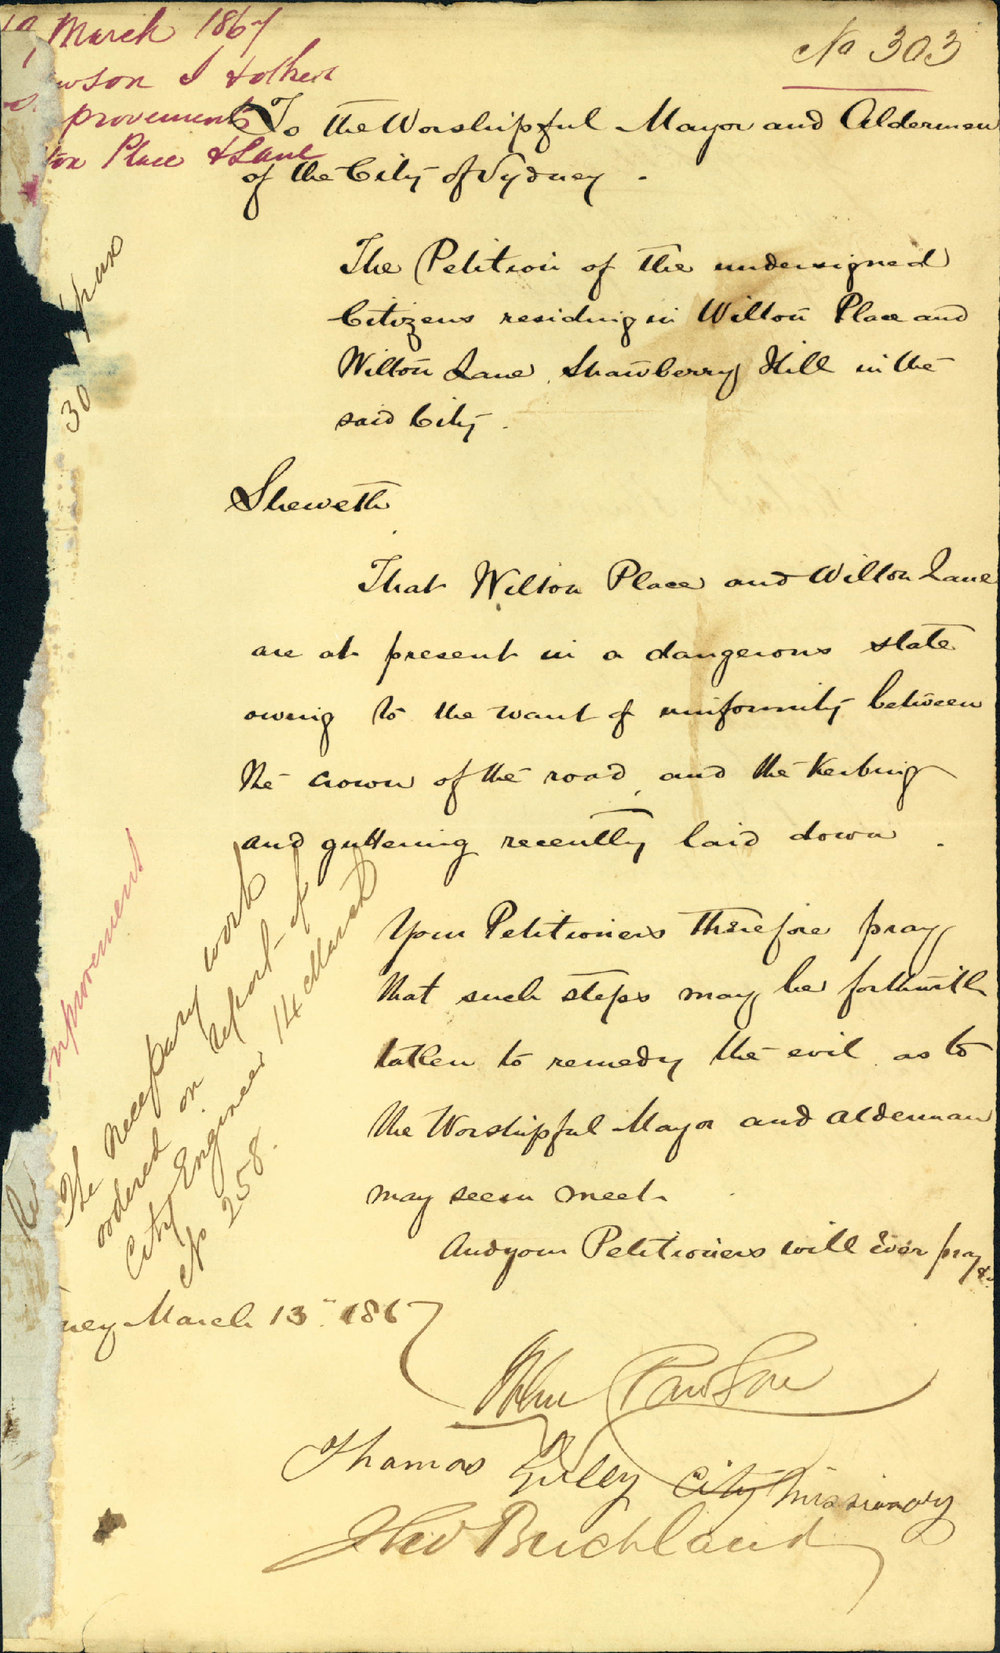 March 1867
No 303
wson J & others
provement
ton Place & Lane
To the Worshipful Mayor and Aldermen
of the City of Sydney.
The Petition of the undersigned
Citizens residing in Wilton Place and
Wilton Lane, Strawberry Hill in the
said City.
Sheweth
That Wilton Place and Wilton Lane
are at present in a dangerous state
owing to the want of uniformity between
the crown of the road, and the Kerbing
and guttering recently laid down.
Your Petitioners therefore pray
that such steps may be forthwith
taken to remedy the evil as to
the Worshipful Mayor and alderman
may seem meet.
And your Petitioners will Ever pray &c
ney March 13th 1867
John Pawson
Thomas Gilley City Missionary
Buckland
30
nprovement
The necessary work
ordered on report of
City Engineer 14 March
No 258.